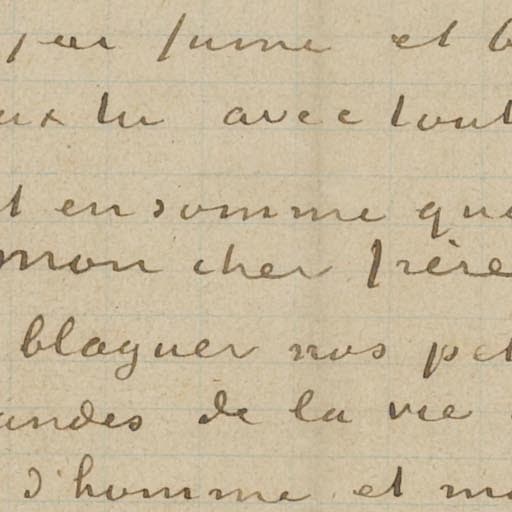 j'ai fumé et b
ux tu avec tout
t en somme que
mon cher frère
blaguer nos pet
andes de la vie
d'homme et ma